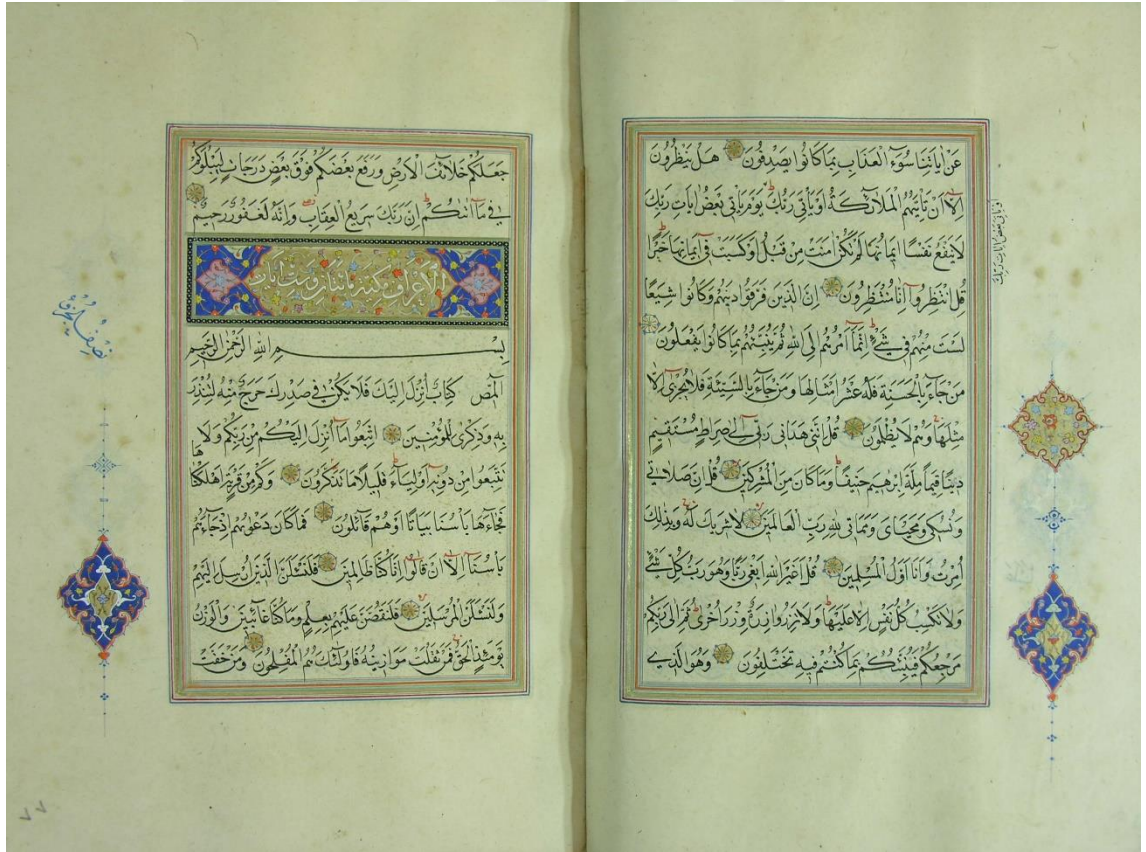 عَنْ اٰيَاتِنَا سُوٓءَ الْعَذَابِ بِمَا كَانُوا يَصْدِفُونَ هَلْ يَنْظُرُونَ
اِلَّآ اَنْ تَاْتِيَهُمُ الْمَلَآئِكَةُ اَوْ يَاْتِيَ رَبُّكَ يَوْمَ يَاْتِي بَعْضُ اٰيَاتِ رَبِّكَ
اَوْ يَاْتِيَ بَعْضُ اٰيَاتِ رَبِّكَ
لَا يَنْفَعُ نَفْسًا اِيمَانُهَا لَمْ تَكُنْ اٰمَنَتْ مِنْ قَبْلُ اَوْ كَسَبَتْ فِيٓ اِيمَانِهَا خَيْرًا
قُلِ انْتَظِرُوٓا اِنَّا مُنْتَظِرُونَ اِنَّ الَّذِينَ فَرَّقُوا دِينَهُمْ وَكَانُوا شِيَعًا
لَسْتَ مِنْهُمْ فِي شَيْءٍ اِنَّمَآ اَمْرُهُمْ اِلَى اللهِ ثُمَّ يُنَبِّئُهُمْ بِمَا كَانُوا يَفْعَلُونَ
مَنْ جَآءَ بِالْحَسَنَةِ فَلَهُ عَشْرُ اَمْثَالِهَا وَمَنْ جَآءَ بِالسَّيِّئَةِ فَلَا يُجْزٰىٓ اِلَّا
مِثْلَهَا وَهُمْ لَا يُظْلَمُونَ قُلْ اِنَّنِي هَدَانِي رَبِّيٓ اِلٰى صِرَاطٍ مُسْتَقِيمٍ
دِينًا قِيَمًا مِلَّةَ اِبْرٰهِيمَ حَنِيفًا وَمَا كَانَ مِنَ الْمُشْرِكِينَ قُلْ اِنَّ صَلَاتِي
وَنُسُكِي وَمَحْيَايَ وَمَمَاتِي لِلّٰهِ رَبِّ الْعَالَمِينَ لَا شَرِيكَ لَهُ وَبِذٰلِكَ
اُمِرْتُ وَاَنَا اَوَّلُ الْمُسْلِمِينَ قُلْ اَغَيْرَ اللهِ اَبْغِي رَبًّا وَهُوَ رَبُّ كُلِّ شَيْءٍ
وَلَا تَكْسِبُ كُلُّ نَفْسٍ اِلَّا عَلَيْهَا وَلَا تَزِرُ وَازِرَةٌ وِزْرَ اُخْرٰى ثُمَّ اِلٰى رَبِّكُمْ
مَرْجِعُكُمْ فَيُنَبِّئُكُمْ بِمَا كُنْتُمْ فِيهِ تَخْتَلِفُونَ وَهُوَ الَّذِي
جَعَلَكُمْ خَلَآئِفَ الْاَرْضِ وَرَفَعَ بَعْضَكُمْ فَوْقَ بَعْضٍ دَرَجَاتٍ لِيَبْلُوَكُمْ
فِي مَآ اٰتٰىكُمْ اِنَّ رَبَّكَ سَرِيعُ الْعِقَابِ وَاِنَّهُ لَغَفُورٌ رَحِيمٌ
الاعراف مكية مائتان وست ايات
بِسْمِ اللهِ الرَّحْمٰنِ الرَّحِيمِ
الٓمٓصٓ كِتَابٌ اُنْزِلَ اِلَيْكَ فَلَا يَكُنْ فِي صَدْرِكَ حَرَجٌ مِنْهُ لِتُنْذِرَ
بِهِ وَذِكْرٰى لِلْمُؤْمِنِينَ اِتَّبِعُوا مَآ اُنْزِلَ اِلَيْكُمْ مِنْ رَبِّكُمْ وَلَا
تَتَّبِعُوا مِنْ دُونِهِٓ اَوْلِيَآءَ قَلِيلًا مَا تَذَكَّرُونَ وَكَمْ مِنْ قَرْيَةٍ اَهْلَكْنَاهَا
فَجَآءَهَا بَاْسُنَا بَيَاتًا اَوْ هُمْ قَآئِلُونَ فَمَا كَانَ دَعْوٰىهُمْ اِذْ جَآءَهُمْ
بَاْسُنَآ اِلَّآ اَنْ قَالُوٓا اِنَّا كُنَّا ظَالِمِينَ فَلَنَسْئَلَنَّ الَّذِينَ اُرْسِلَ اِلَيْهِمْ
وَلَنَسْئَلَنَّ الْمُرْسَلِينَ فَلَنَقُصَّنَّ عَلَيْهِمْ بِعِلْمٍ وَمَا كُنَّا غَآئِبِينَ وَالْوَزْنُ
يَوْمَئِذٍ الْحَقُّ فَمَنْ ثَقُلَتْ مَوَازِينُهُ فَاُولٰٓئِكَ هُمُ الْمُفْلِحُونَ وَمَنْ خَفَّتْ
٧٧